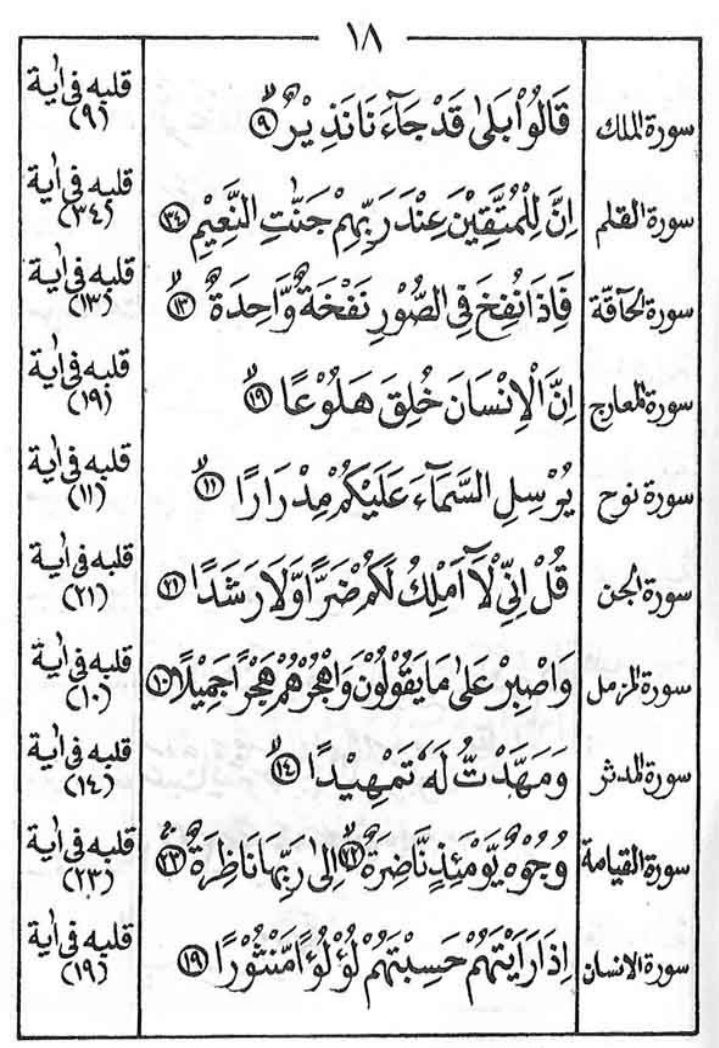 ١٨
سورة الملك قَالُوْا بَلٰى قَدْ جَآءَنَا نَذِيْرٌ ۙ ﴿٩﴾ قلبه فى اٰية (٩)
سورة القلم اِنَّ لِلْمُتَّقِيْنَ عِنْدَ رَبِّهِمْ جَنّٰتِ النَّعِيْمِ ﴿٣٤﴾ قلبه فى اٰية (٣٤)
سورة الحآقّة فَاِذَا نُفِخَ فِى الصُّوْرِ نَفْخَةٌ وَّاحِدَةٌ ۙ ﴿١٣﴾ قلبه فى اٰية (١٣)
سورة المعارج اِنَّ الْاِنْسَانَ خُلِقَ هَلُوْعًا ۙ ﴿١٩﴾ قلبه فى اٰية (١٩)
سورة نوح يُرْسِلِ السَّمَآءَ عَلَيْكُمْ مِدْرَارًا ۙ ﴿١١﴾ قلبه فى اٰية (١١)
سورة الجن قُلْ اِنِّىْ لَآ اَمْلِكُ لَكُمْ ضَرًّا وَّلَا رَشَدًا ﴿٢١﴾ قلبه فى اٰية (٢١)
سورة المزمل وَاصْبِرْ عَلٰى مَا يَقُوْلُوْنَ وَاهْجُرْهُمْ هَجْرًا جَمِيْلًا ﴿١٠﴾ قلبه فى اٰية (١٠)
سورة المدثر وَمَهَّدْتُّ لَهٗ تَمْهِيْدًا ۙ ﴿١٤﴾ قلبه فى اٰية (١٤)
سورة القيامة وُجُوْهٌ يَّوْمَئِذٍ نَّاضِرَةٌ ۙ ﴿٢٢﴾ اِلٰى رَبِّهَا نَاظِرَةٌ ۚ ﴿٢٣﴾ قلبه فى اٰية (٢٣)
سورة الانسان اِذَا رَاَيْتَهُمْ حَسِبْتَهُمْ لُؤْلُؤًا مَّنْثُوْرًا ﴿١٩﴾ قلبه فى اٰية (١٩)